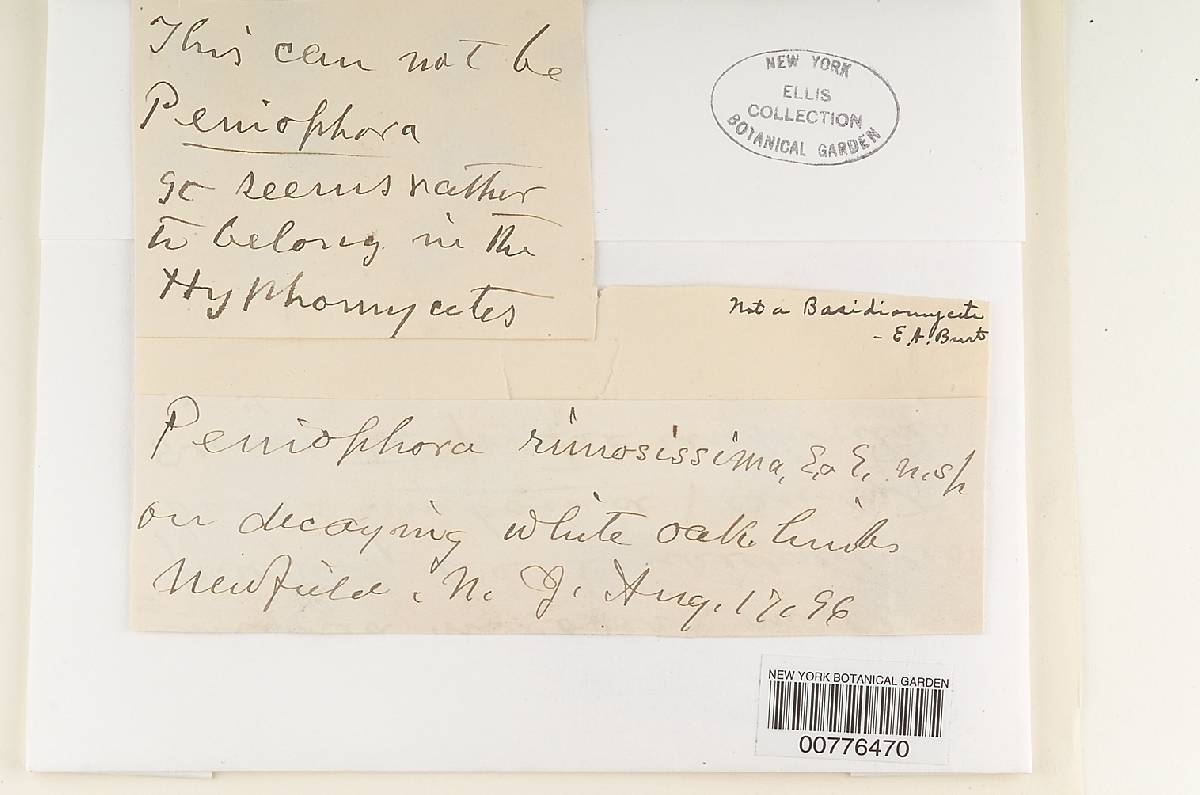 This can not be
Peniophora
It seems rather
to belong in the
Hyphomycetes
NEW YORK
ELLIS
COLLECTION
BOTANICAL GARDEN
Not a Basidiomycete
- E. A. Burt
Peniophora rimosissima, E. & E. n. sp
on decaying white oak limbs
Newfield, N. J. Aug. 17, 96
NEW YORK BOTANICAL GARDEN
00776470